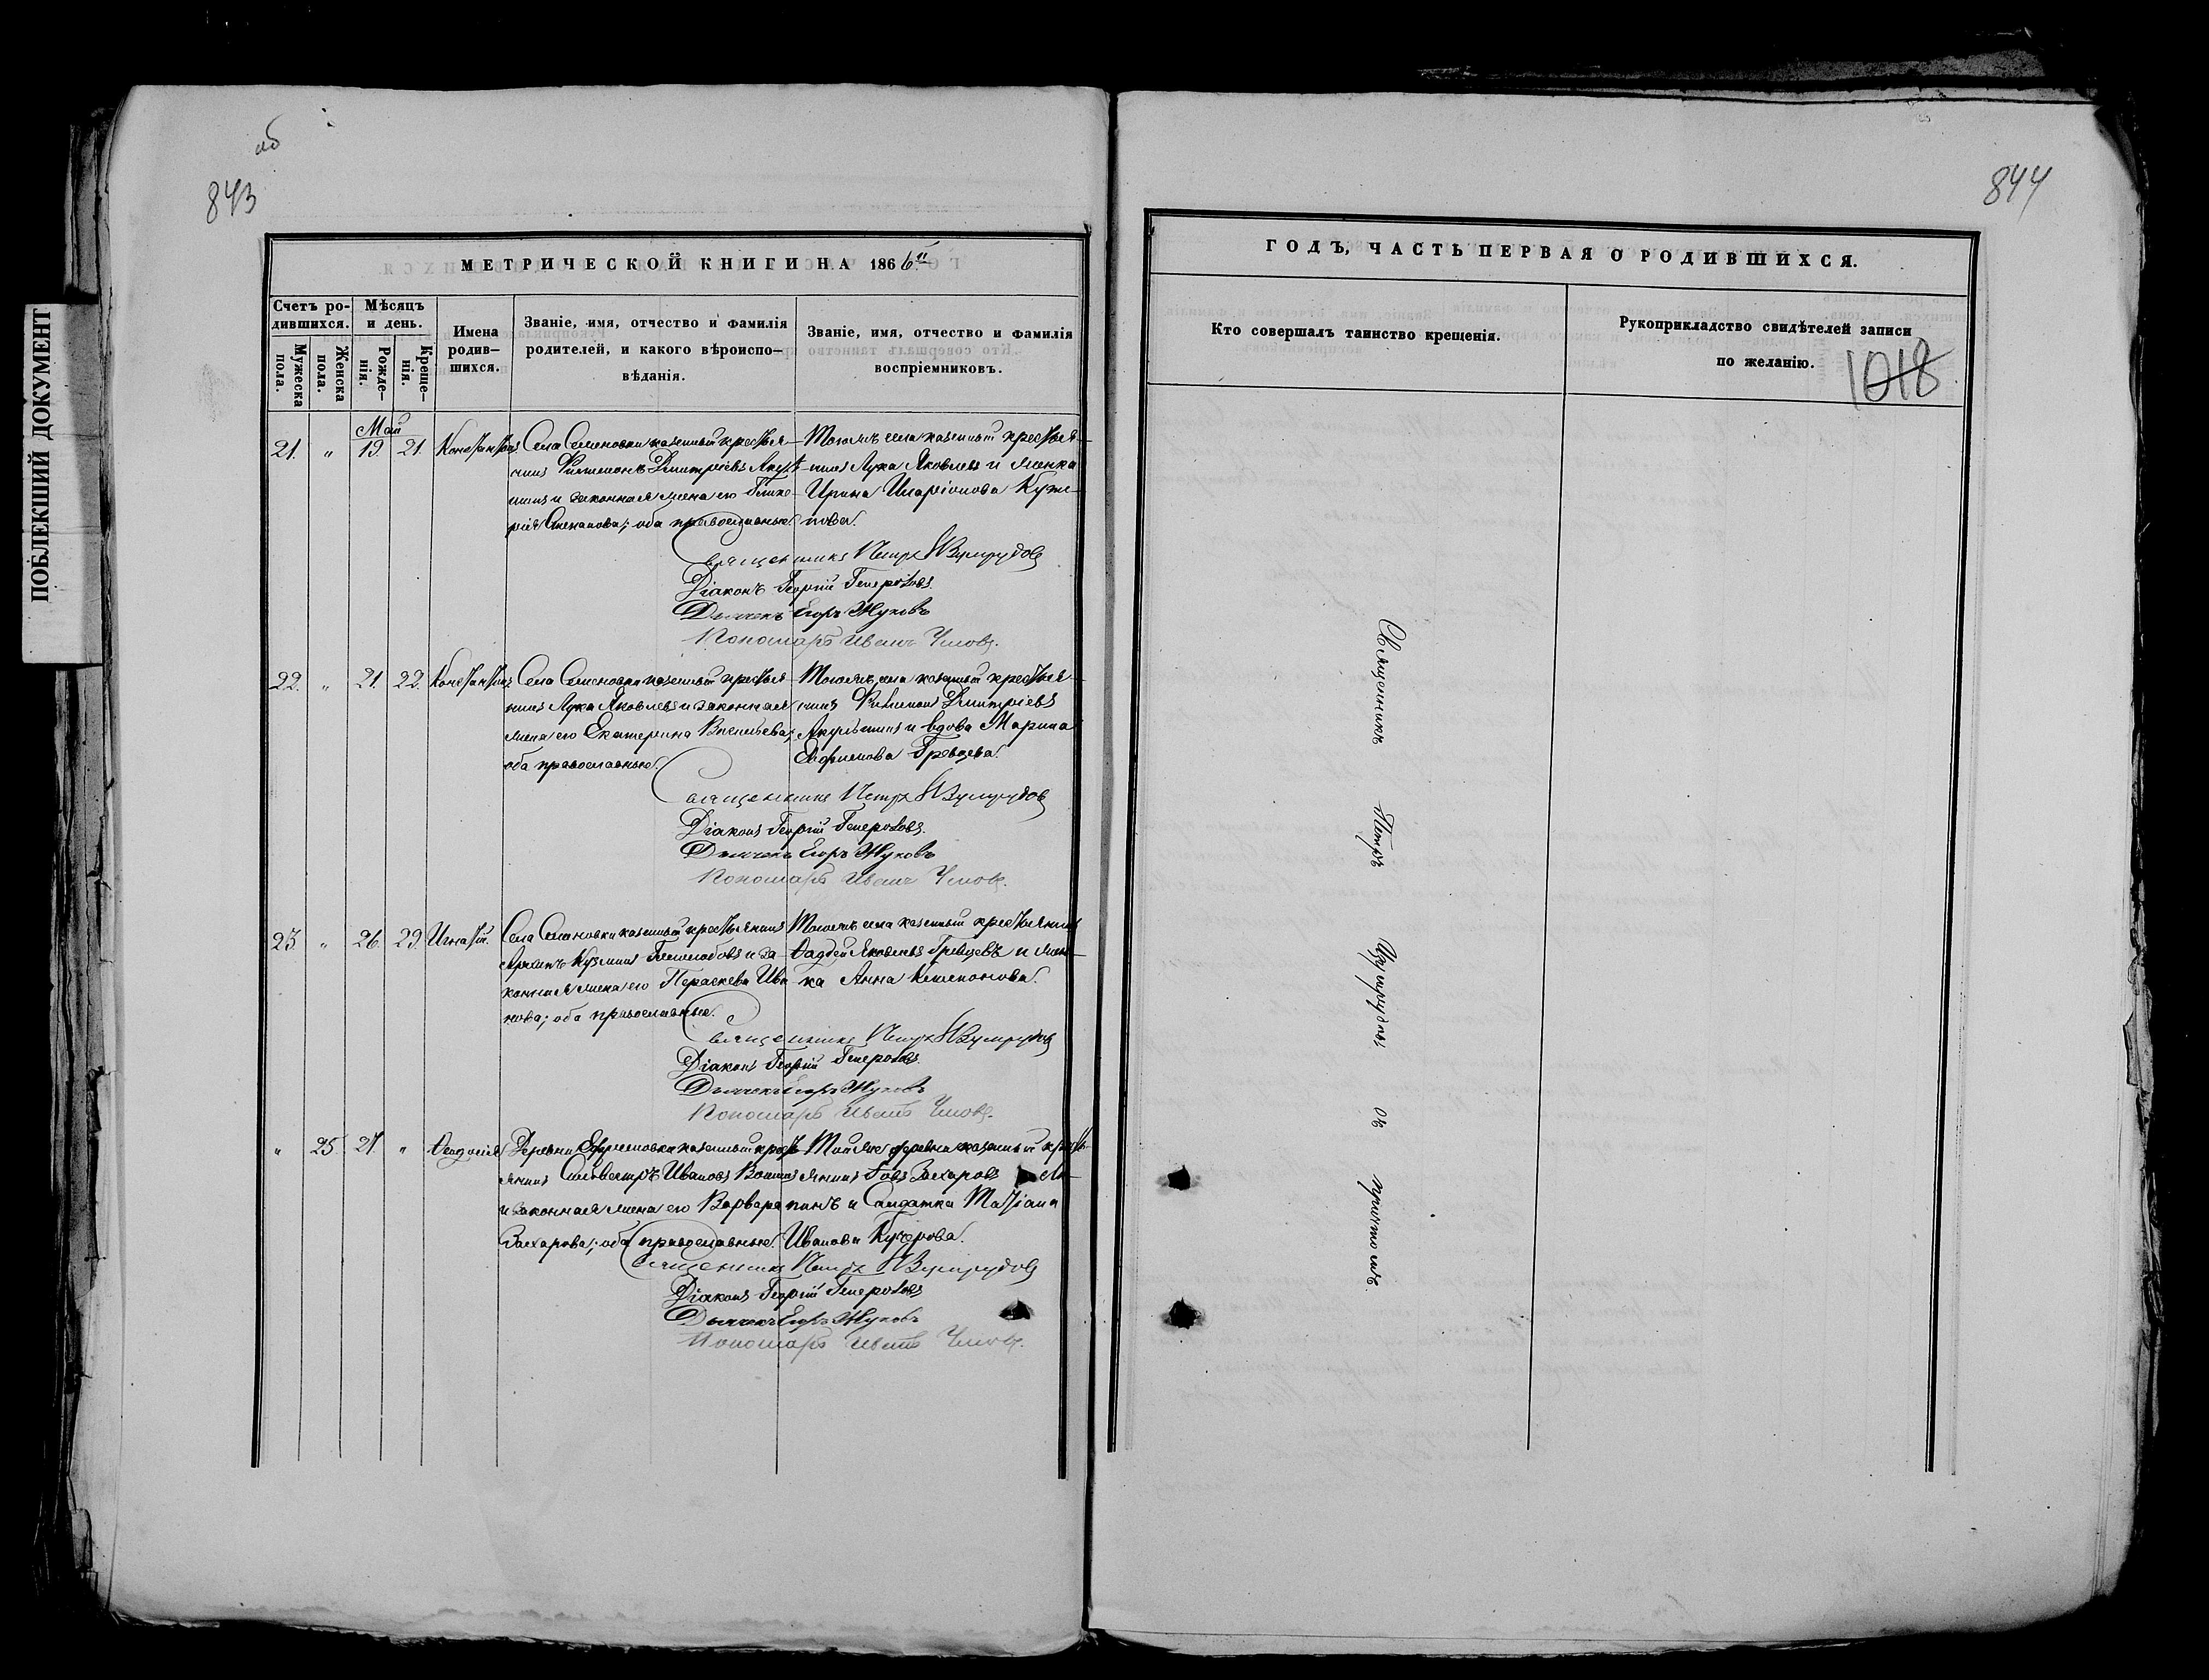 об
843
ПОБЛЕКШИЙ ДОКУМЕНТ
МЕТРИЧЕСКОЙ КНИГИ НА 1866й
Счетъ ро-
дившихся.
Мужеска
пола.
Женска
пола.
Мѣсяцъ
и день.
Рожде-
нія.
Креще-
нія.
Имена
родив-
шихся.
Званіе, имя, отчество и фамилія
родителей, и какого вѣроиспо-
вѣданія.
Званіе, имя, отчество и фамилія
воспріемниковъ.
Май
21. " 19. 21. Константинъ
Села Семеновки казенный крестья-
нинъ Филимонъ Дмитріевъ Акуль-
шинъ и законная жена его Глике-
рія Степанова; оба православные.
Тогожъ села казенный крестья-
нинъ Лука Яковлевъ и женка
Ирина Иларіонова
Священникъ Петръ Изумрудовъ
Діаконъ Георгій
Дьячекъ Егоръ Жуковъ
Пономарь Иванъ Умовъ.
22. " 21. 22. Константинъ
Села Семеновки казенный крестья-
нинъ Лука Яковлевъ и законная
жена его Екатерина Васильева;
оба православные.
Тогожъ села казенный крестья-
нинъ Филимонъ Дмитріевъ
Акульшинъ и вдова Марина
Евфимова Гревцева.
Священникъ Петръ Изумрудовъ
Діаконъ Георгій
Дьячекъ Егоръ Жуковъ
Пономарь Иванъ Умовъ.
23 " 26. 29. Игнатій.
Села Семеновки казенный крестьянинъ
Архипъ Кузминъ и за-
конная жена его Параскева Ива-
нова; оба православные.
Тогожъ села казенный крестьянинъ
Фаддей Яковлевъ Гревцевъ и жен-
ка Анна
Священникъ Петръ Изумрудовъ
Діаконъ Георгій
Дьячекъ Егоръ Жуковъ
Пономарь Иванъ Умовъ.
" 25. 27. " Феодосія
Деревни Ефремовки казенный кресть-
янинъ Сильвестръ Ивановъ
и законная жена его Варвара
Захарова; оба православные.
Той же деревни казенный кресть-
янинъ Захаровъ
и Солдатка Татіана
Иванова Кучерова.
Священникъ Петръ Изумрудовъ
Діаконъ Георгій
Дьячекъ Егоръ Жуковъ
Пономарь Иванъ Умовъ.
844
ГОДЪ, ЧАСТЬ ПЕРВАЯ О РОДИВШИХСЯ.
Кто совершалъ таинство крещенія.
Рукоприкладство свидѣтелей записи
по желанію.
1018
Священникъ Петръ Изумрудовъ съ причтомъ.